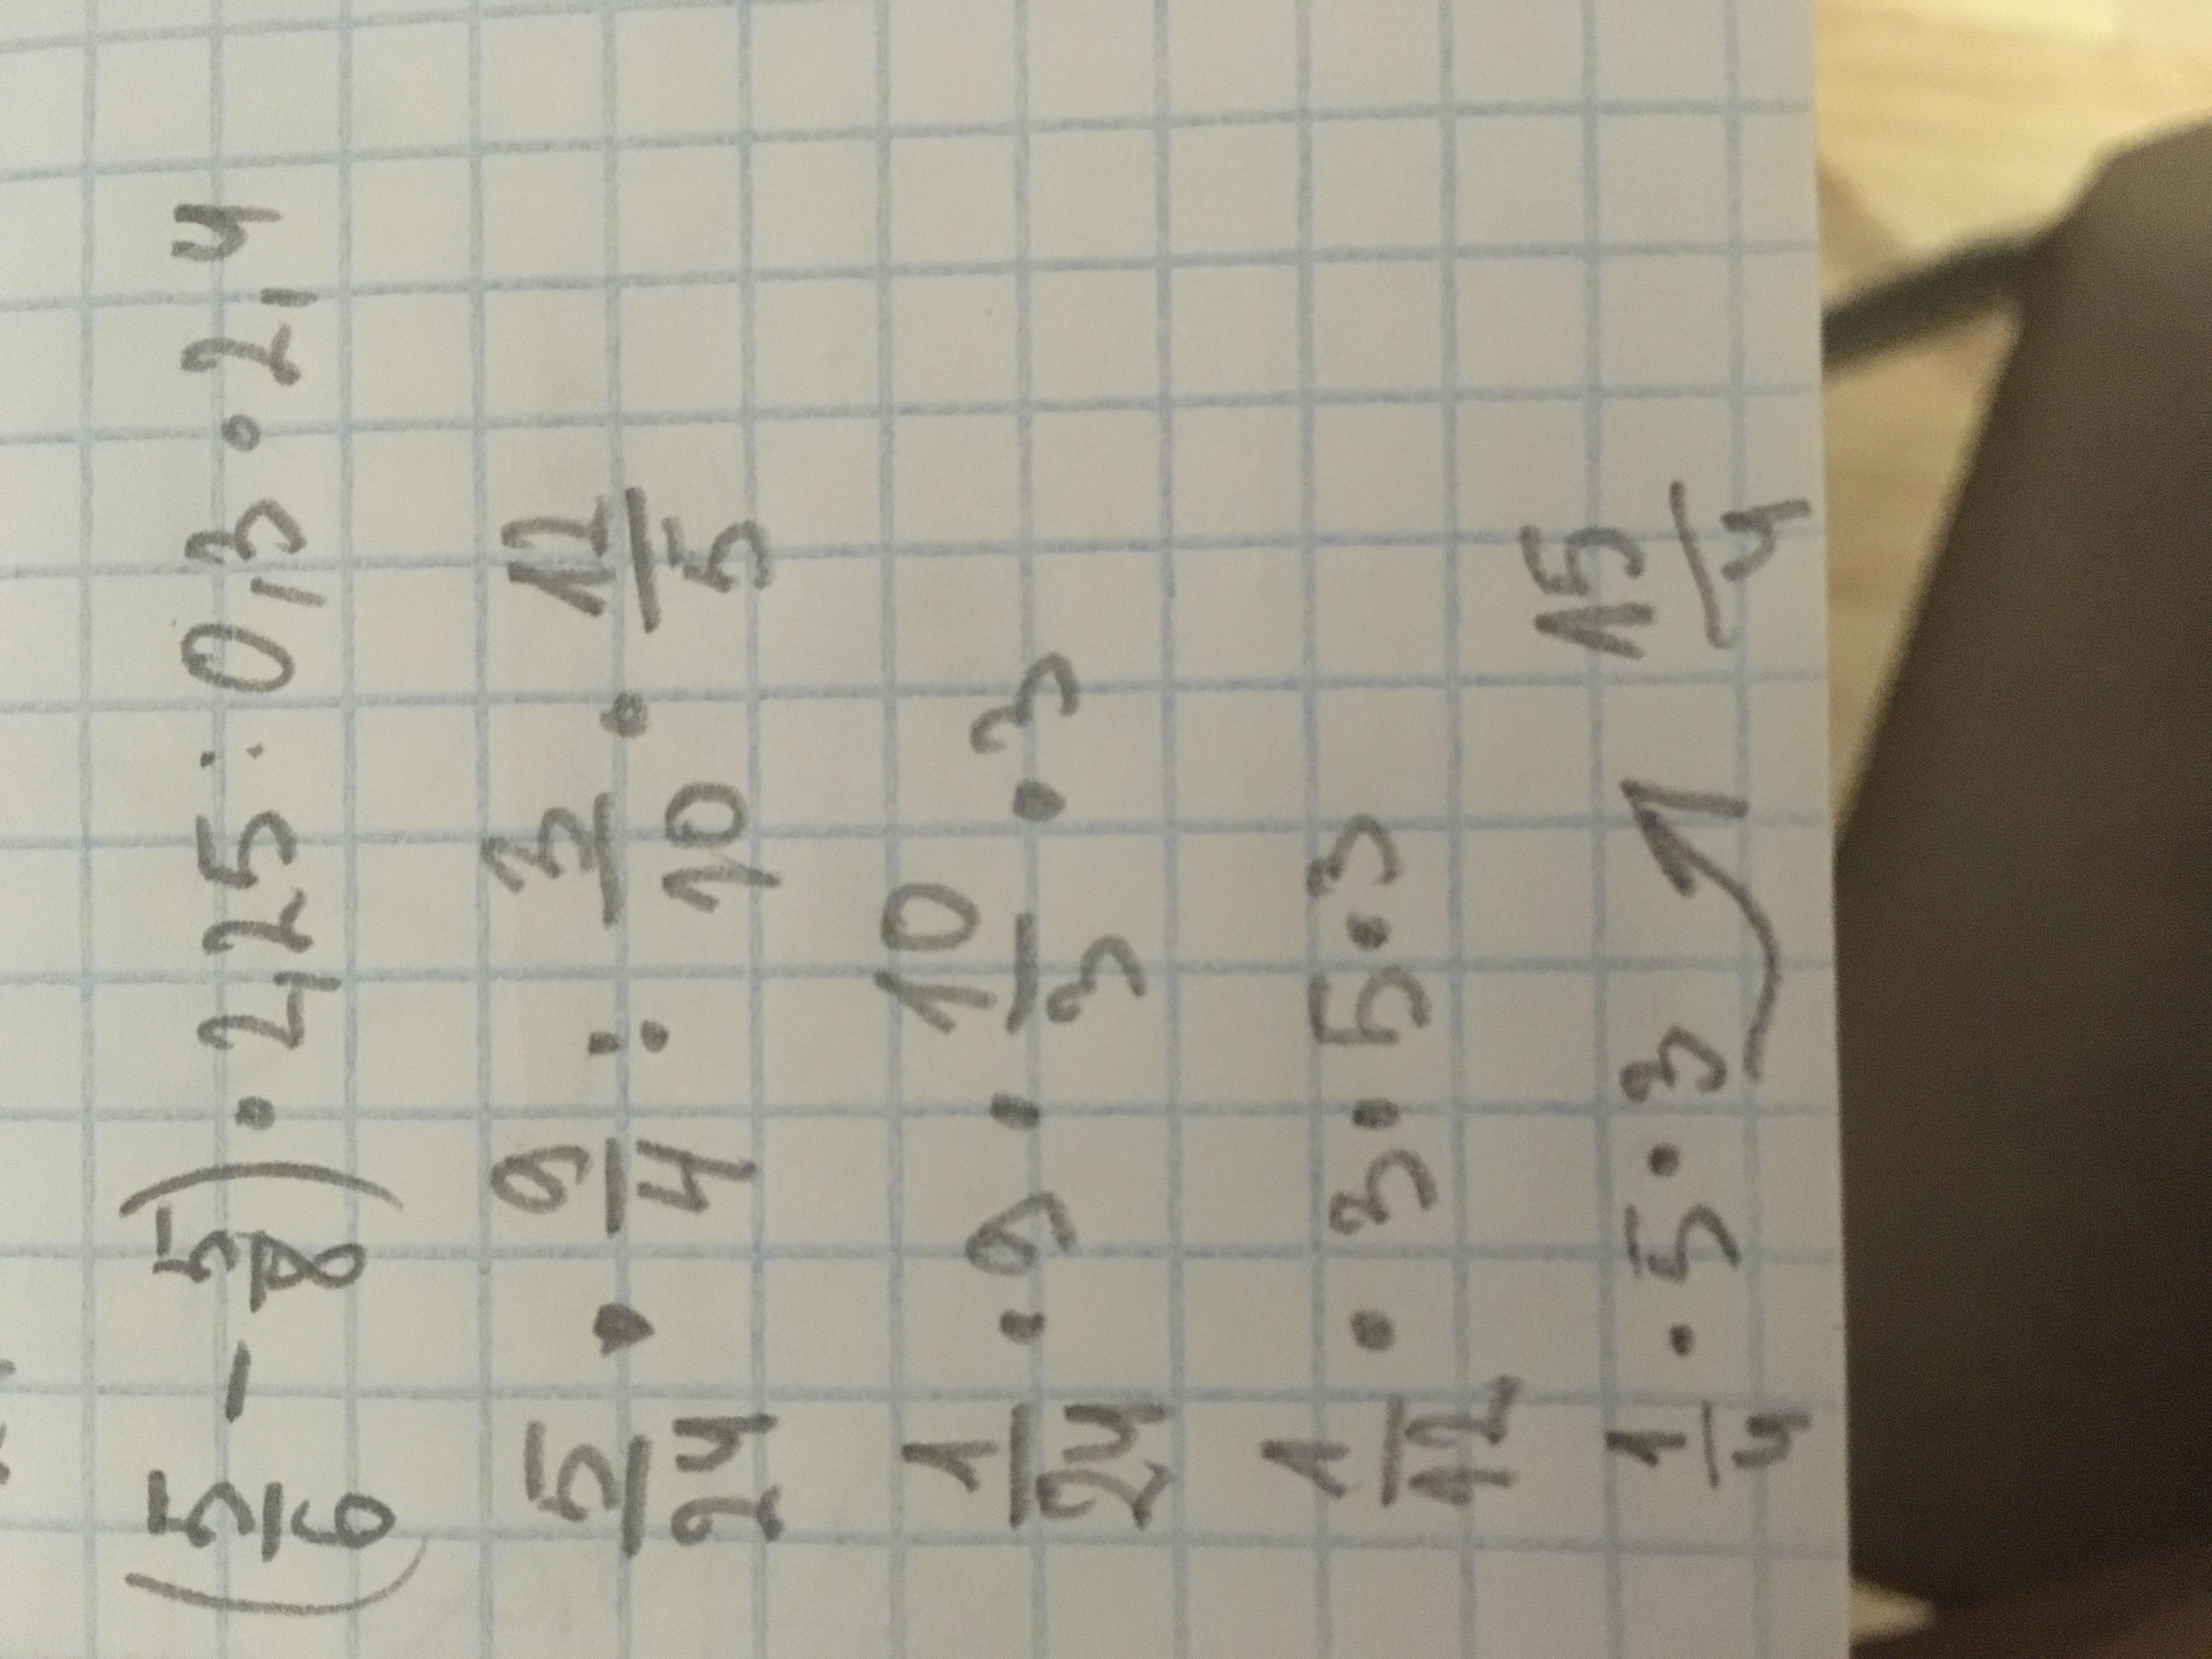 (5/6 - 5/8) · 2,25 : 0,3 · 2,4
5/24 · 9/4 : 3/10 · 12/5
1/24 · 9 · 10/3 · 3
1/12 · 3 · 5 · 3
1/4 · 5 · 3 → 15/4